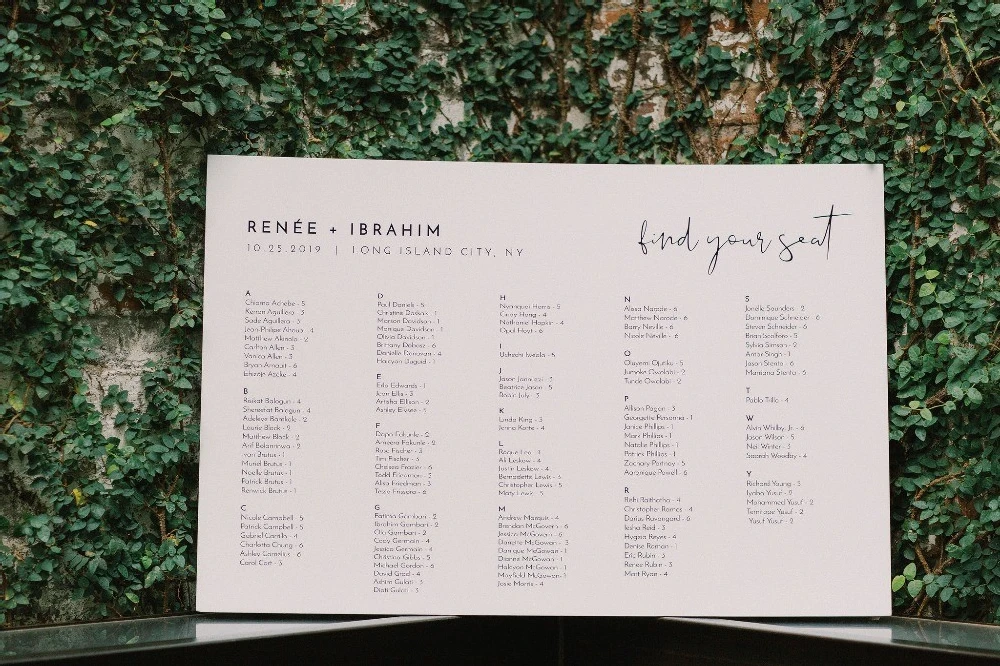 RENÉE + IBRAHIM
10.25.2019 | LONG ISLAND CITY, NY
find your seat
A
Chioma Achebe - 5
Kenan Aguilera - 3
Sade Aguilera - 3
Jean-Philipe Ahoua - 4
Matthew Akinola - 2
Carlton Allen - 3
Vanica Allen - 3
Bryan Amaait - 6
Azeke - 4
B
Rafkat Balogun - 4
Sherestat Balogun - 4
Adeleye Bamkole - 2
Laurie Black - 2
Matthew Black - 2
Arif Bolanrinwa - 2
Ivan Brutus - 1
Muriel Brutus - 1
Noelle Brutus - 1
Patrick Brutus - 1
Renwick Brutus - 1
C
Nicole Campbell - 5
Patrick Campbell - 5
Gabriel Carrillo - 4
Charlotte Chung - 6
Ashley Cornelius - 6
Carol Cort - 3
D
Paul Daniels - 5
Christine Daskais - 1
Marson Davidson - 1
Monique Davidson - 1
Olivia Davidson - 1
Brittany Debesz - 6
Danielle Donovan - 4
Halcyon Duguid - 1
E
Erla Edwards - 1
Jean Ellis - 3
Artisha Ellison - 2
Ashley Elysee - 4
F
Dapo Fakunle - 2
Ameera Fakunle - 2
Rose Fischer - 3
Tim Fischer - 3
Chelsea Frazier - 6
Todd Friedman - 3
Alisa Friedman - 3
Tezze Frissora - 6
G
Fatima Gambari - 2
Ibrahim Gambari - 2
Ola Gambari - 2
Cody Germain - 4
Jessica Germain - 4
Christina Gibbs - 5
Michael Gordon - 6
David Grad - 4
Ashim Gulati - 3
Disti Gulati - 3
H
Nyanquoi Harris - 5
Cindy Hong - 4
Nathanie Hopkin - 4
Opal Hoyt - 6
I
Uchechi Iweala - 5
J
Jason Joannazzi - 3
Beatrice Jasson - 5
Robin July - 3
K
Linda King - 3
Jenna Korte - 4
L
Raquel Leo - 3
Ali Leskow - 4
Justin Leskow - 4
Bernadette Lewis - 3
Christopher Lewis - 5
Maty Lewis - 5
M
Andrew Marquis - 4
Brendan McGovern - 6
Jessica McGovern - 6
Danielle McGowan - 3
Danique McGowan - 1
Dionne McGowan - 1
Halcyon McGowan - 1
Mayfield McGowan - 1
Josie Morris - 4
N
Alissa Narode - 6
Matthew Narode - 6
Barry Neville - 6
Nicole Neville - 6
O
Oluyemi Ojutiku - 5
Jumoke Owolabi - 2
Tunde Owolabi - 2
P
Allison Pagan - 3
Georgette Personna - 1
Janice Phillips - 1
Mark Phillips - 1
Natalie Phillips - 1
Patrick Phillips - 1
Zachary Portney - 5
Powell - 6
R
Rehi Raithatha - 4
Christopher Ramos - 4
Darius Ravangard - 6
Iesha Reid - 3
Hygeia Reyes - 4
Denise Roman - 1
Eric Rubin - 3
Renée Rubin - 3
Matt Ryan - 4
S
Janelle Saunders - 2
Dominique Schneider - 6
Steven Schneider - 6
Brian Scotiero - 5
Sylvia Simson - 2
Amar Singh - 1
Jason Stento - 6
Mariana Stento - 6
T
Pablo Trillo - 4
W
Alvin Whilby, Jr. - 6
Jason Wilson - 5
Neil Winter - 3
Saarah Woodby - 4
Y
Richard Young - 3
Iyabo Yusuf - 2
Mohammed Yusuf - 2
Temitope Yusuf - 2
Yusuf Yusuf - 2